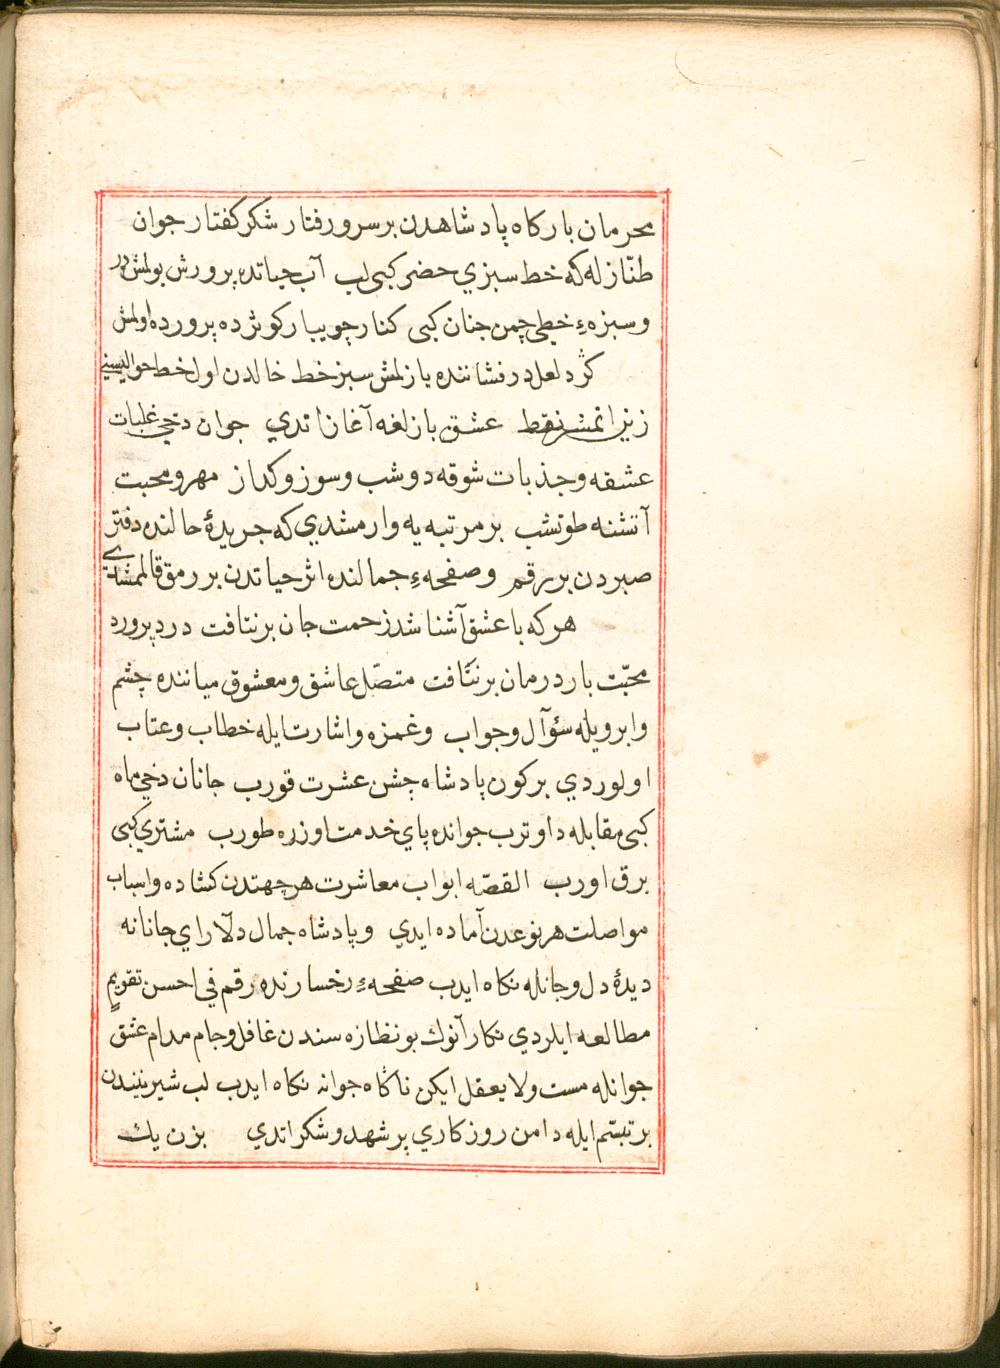 محرمان باركاه پادشاهدن بر سرو رفتار شكر كفتار جوان
طنّازله كه خط سبزي حضر كبى لب آب حياتده پرورش بولمش در
وسبزهء خطى چمن جنان كبى كنار جويبار كوثرده پرورده اولمش
كرد لعل درفشاننده يازلمش سبز خط خالدن اول خط حواليسينى
زيرا نمش نقط عشق بازلغه آغاز اتدي جوان دخى غلبات
عشقه وجذبات شوقه دوشب وسوز وكداز مهر ومحبت
آتشنه طوتشب بر مرتبه يه وارمشدي كه جريدهٔ حالنده دفتر
صبردن بر رقم وصفحهء جمالنده اثر حياتدن بر رمق قالمشدي
هركه با عشق آشنا شد زحمت جان برنتافت درد پرورد
محبّت بار درمان برنتافت متصّل عاشق ومعشوق مياننده چشم
وابرويله سؤآل وجواب وغمزه واشارت ايله خطاب وعتاب
اولوردي بر كون پادشاه جشن عشرت قورب جانان دخى ماه
كبى مقابله ده اوترب جوانده پاي خدمت اوزره طورب مشتري كبى
برق اورب القصّه ابواب معاشرت هر جهتدن كشاده واسباب
مواصلت هر نوعدن آماده ايدي وپادشاه جمال دلآراي جانانه
ديدهٔ دل وجانله نكاه ايدب صفحهء رخسارنده رقم في احسن تقويمٍ
مطالعه ايلردي نكار آنوك بو نظاره سندن غافل وجام مدام عشق
جوانله مست ولا يعقل ايكن ناكاه جوانه نكاه ايدب لب شيرينندن
بر تبسّم ايله دامن روزكاري پر شهد وشكر اتدي بزن يك